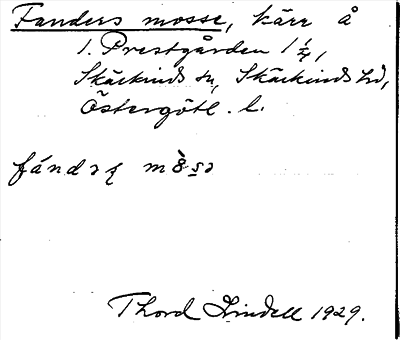 Fanders mosse, kärr å
1. Prestgården 1 1/4,
Skärkinds sn, Skärkinds hd,
Östergötl. l.
Thord Lindell 1929.